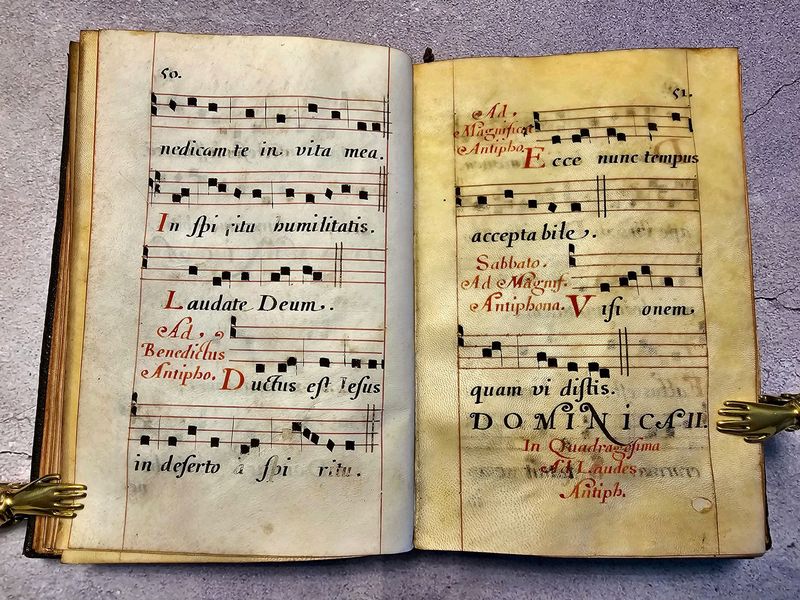 50.
nedicam te in vita mea.
In spi ritu humilitatis.
Laudate Deum.
Ad
Benedictus
Antipho. Ductus est Iesus
in deserto a spi ritu.
51.
Ad
Magnificat
Antipho. Ecce nunc tempus
accepta bile.
Sabbato.
Ad Magnif.
Antiphona. Visi onem
quam vi distis.
DOMINICA II.
In Quadragesima
Ad Laudes
Antiph.